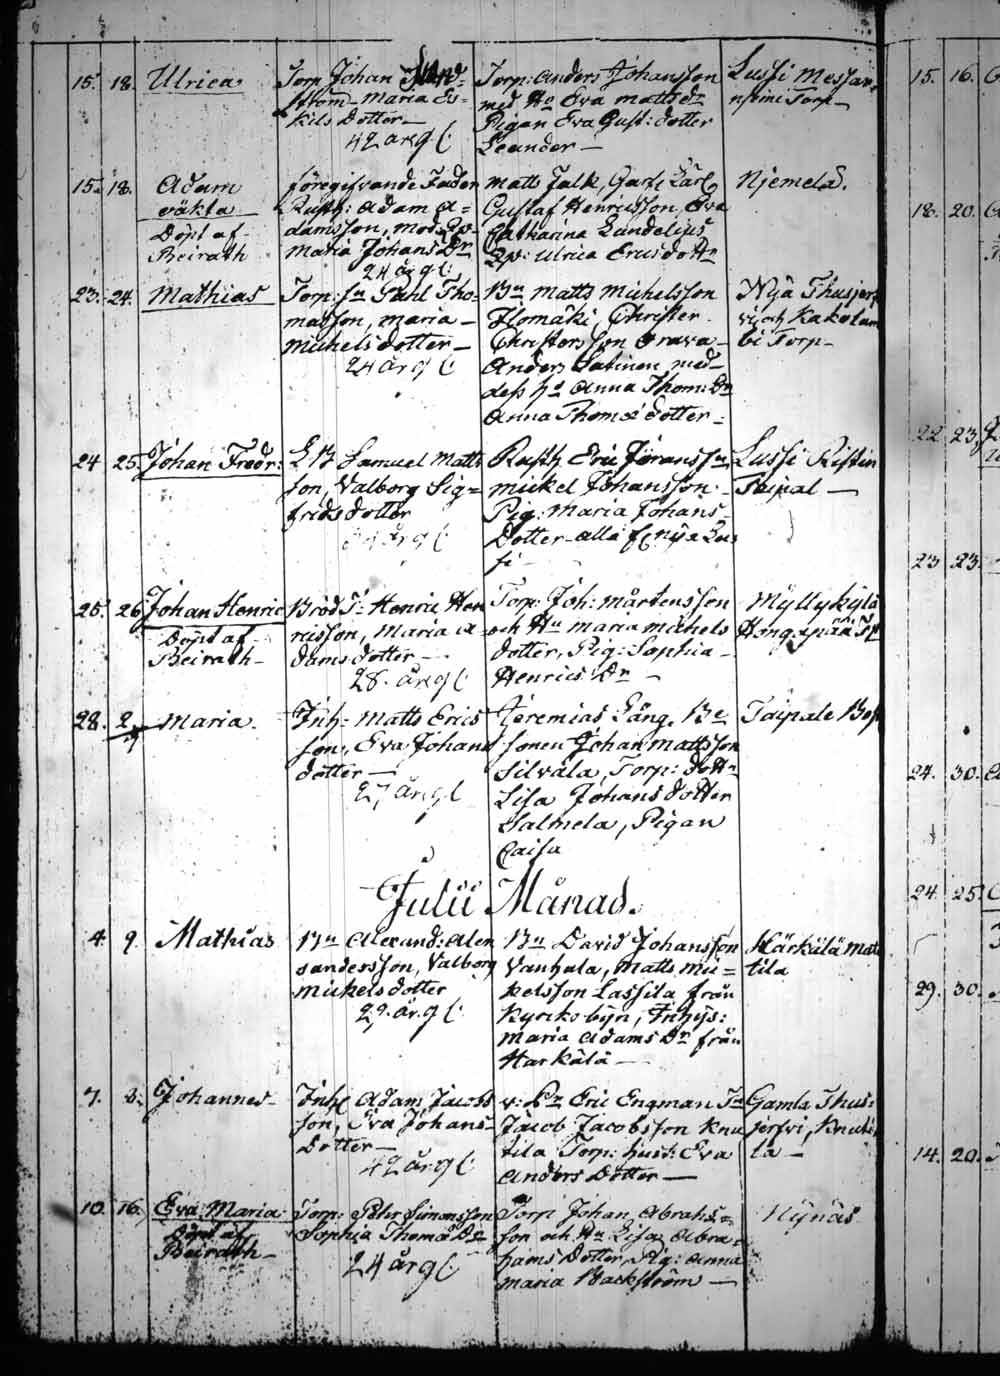 15. 18. Ulrica
Torp Johan
ström Maria Es=
kils dotter
42 år g(:
Torp: Anders Johansson
med Ho Eva Mattsdr
Pigan Eva Gust: dotter
Leander
Lussi Messar=
niemi Torp
15. 18. Adam
oäkta
Döpt af
Beirath
föregifvande Fader
Rusth: Adam A=
damsson, mod:
Maria Johans Dr
24 år g(:
Matts Falk, Garf:
Gustaf Henricsson, Eva
Catharina Lundelius
Ulrica Ericsdottr
Njemelä.
23. 24. Mathias
Torp: Sn Pehl Tho=
masson, Maria
Michelsdotter
24 år g(:
Bn Matts Michelsson
Ilomäki, Christer
Christersson Orava
Anders Latinen med
dess ho Anna Thom: Dr
Anna Thomæ dotter
Nyä Thusjerf
vi och Kakolam
bi Torp
24 25 Johan Fredr:
Samuel Matts
son, Valborg Sig=
frids dotter
år g(:
Rusth Eric Jöransson
Mickel Johansson
Pig: Maria Johans=
dotter alla f: nya Lus
si
Lussi Ristin
Taipal
25. 26 Johan Henric
Döpt af
Beirath
Henric Hen
ricsson, Maria A=
dams dotter
28. år g(:
Torp: Joh: Mårtensson
och Hu Maria Michels
dotter, Pig: Sophia
Henrics Dr
Myllykylä
Hongapää
28. 2/7 Maria.
Inh: Matts Erics
son, Eva Johans
dotter
27 år g(
Jeremias Lång, Be
sonen Johan Mattsson
Silvala, Torp: dottr
Lisa Johans dotter
Salmela, Pigan
Caisa
Taipale
Julii Månad.
4. 9. Mathias
Bn Alexand: Alex
sandersson, Valborg
Michelsdotter
29. år g(:
Bn David Johansson
Vanhala, Matts Mi=
kelsson Lassila från
Kyrkobyn, Inhys:
Maria Adams Dr från
Härkälä
Härkälä Mat
tila
7. 8. Johannes
Inh: Adam Jacobs
son, Eva Johans=
dotter
42 år g(:
Eric Engman
Jacob Jacobsson Knu
tila Torp: hust: Eva
Anders dotter
Gamla Thus:
jerfvi, Knuti
la
10. 16. Eva Maria
Döpt af
Beirath
Torp: Petter Simonsson
Sophia Thomæ Dr
24 år g(:
Torp: Johan Abrahs=
son och Hu Lisa Abra=
hams dotter, Pig: Anna
Maria Backström
Nynäs
15. 16.
18. 20.
22. 23.
23 23.
24. 30.
24. 25
29. 30.
14. 20.